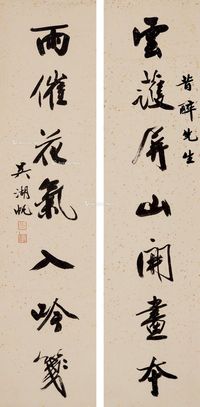 雲護屏山開畫本
昔醉先生
雨催花氣入吟箋
吳湖帆